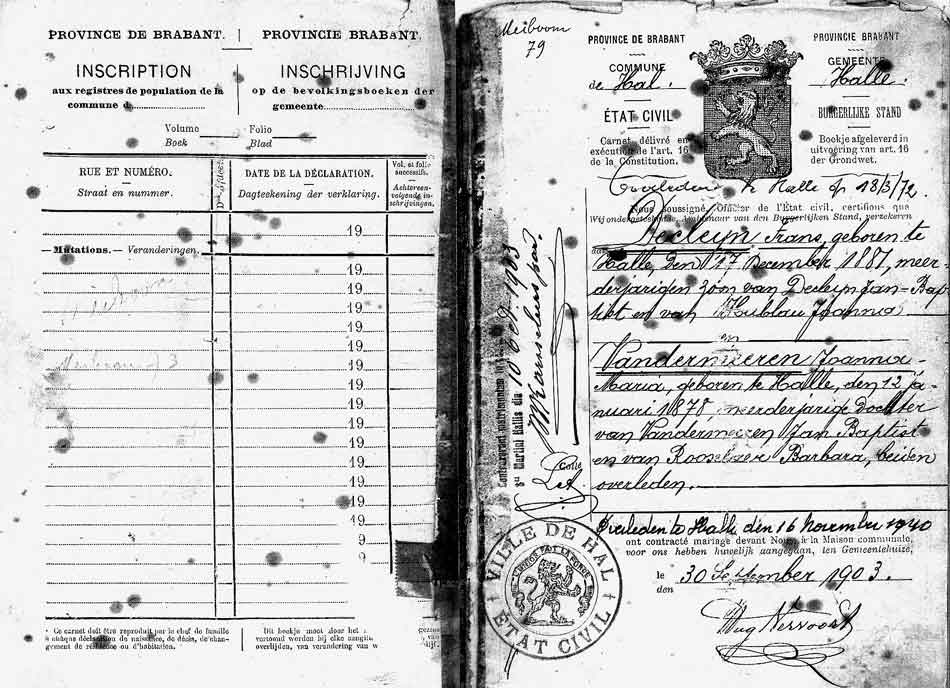 PROVINCE DE BRABANT.
PROVINCIE BRABANT.
INSCRIPTION
aux registres de population de la
commune d
INSCHRIJVING
op de bevolkingsboeken der
gemeente
Volume
Boek
Folio
Blad
RUE ET NUMÉRO.
Straat en nummer.
DATE DE LA DÉCLARATION.
Dagteekening der verklaring.
Vol. et folio
successifs.
Achtereen-
volgende in-
schrijvingen.
19
— Mutations. — Veranderingen.
19
19
19
19
19
19
19
19
19
19
19
19
19
19
9
9
* Ce carnet doit être reproduit par le chef de famille
à chaque déclaration de naissance, de décès, de chan-
gement de résidence ou d'habitation.
Dit boekje moet door het
vertoond worden bij elke aangifte
overlijden, van verandering van w
Meiboom
79
PROVINCE DE BRABANT
COMMUNE
de Hal.
ÉTAT CIVIL
Carnet délivré en
exécution de l'art. 16
de la Constitution.
PROVINCIE BRABANT
GEMEENTE
Halle.
BURGERLIJKE STAND
Boekje afgeleverd in
uitvoering van art. 16
der Grondwet.
Overleden te Halle op 18/3/72
Nous soussigné, Officier de l'État civil, certifions que
Wij ondergeteekende, Ambtenaar van den Burgerlijken Stand, verzekeren
Decleyn Frans, geboren te
Halle, den 17 December 1881, meer-
derjarigen zoon van Decleyn Jan-Bap-
tist en van Houblau Joanna
en
Vandermeeren Joanna-
Maria, geboren te Halle, den 12 ja-
nuari 1878, meerderjarige dochter
van Vandermeeren Jan Baptist
en van Barbara, beiden
overleden.
Overleden te Halle den 16 november 1940
ont contracté mariage devant Nous à la Maison communale,
voor ons hebben huwelijk aangegaan, ten Gemeentehuize,
le
den
30 September 1903.
S Martini Hallis die 10 1903
VILLE DE HAL
ÉTAT CIVIL